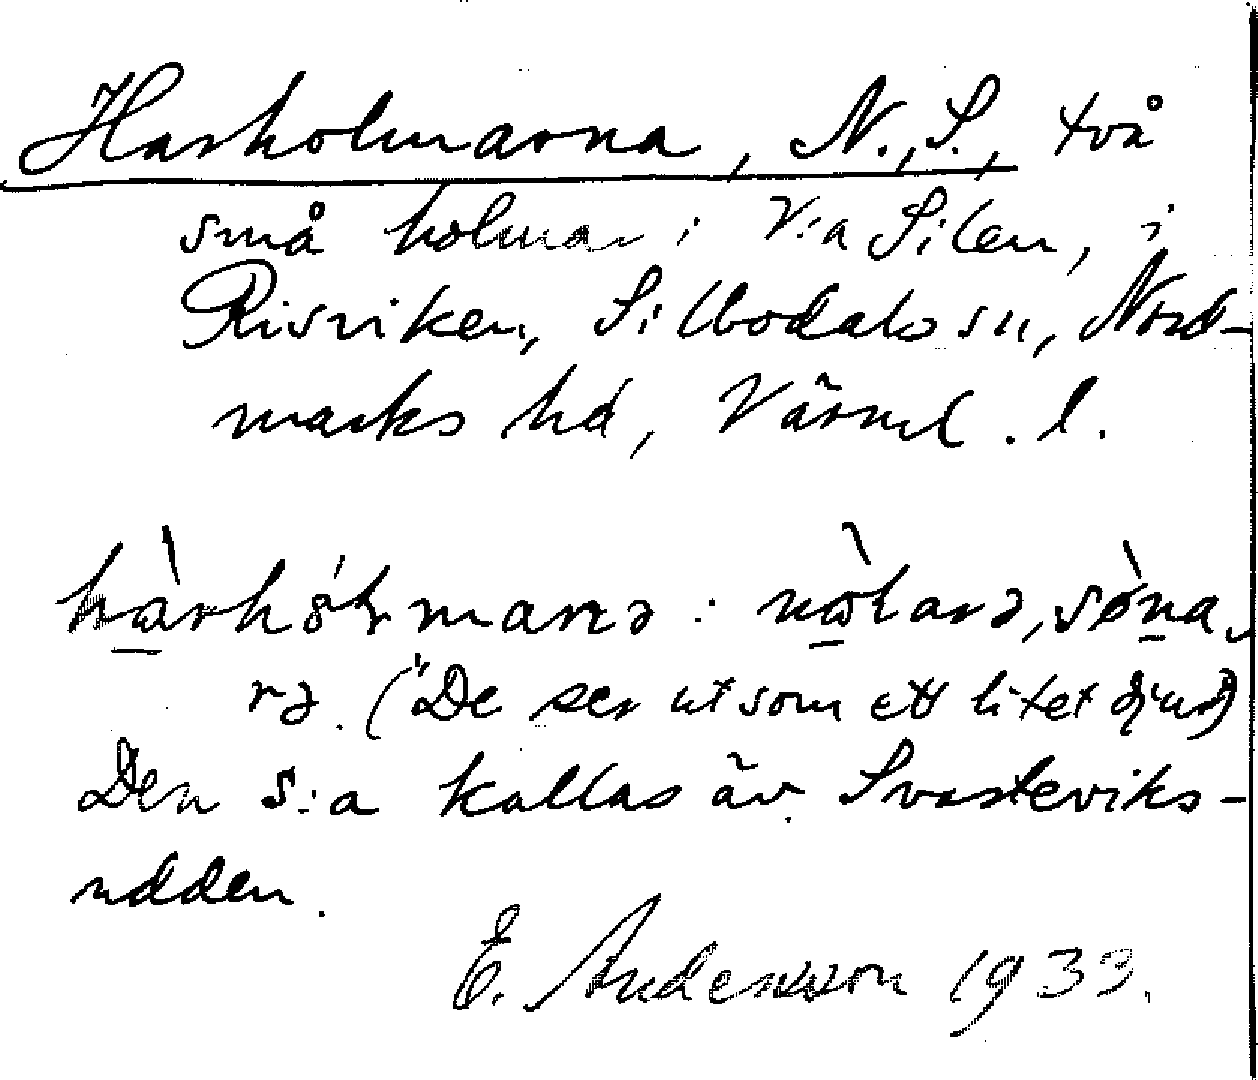 Harholmarna, N., S., två
små holmar i V:a Silen, i
Risviken, Silbodals sn, Nord-
marks hd, Värml. l.
De ser ut som ett litet djur)
Den s:a kallas äv. Svarteviks-
udden.
E. Andersson 1933.